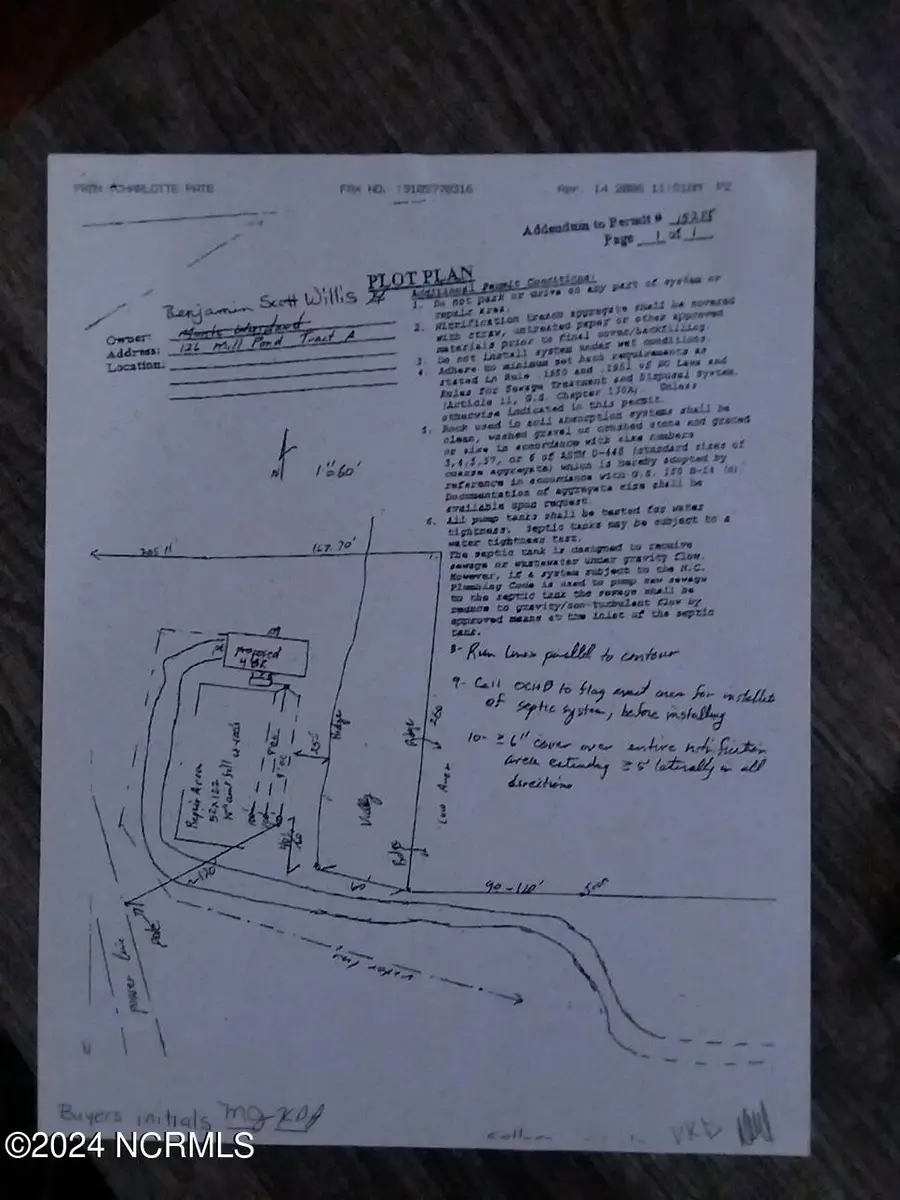 FROM : CHARLOTTE PATE FAX NO. : 9105770316 Apr. 14 2006 11:51AM P2
Addendum to Permit #
Page 1 of 1
PLOT PLAN
Benjamin Scott Willis
Owner:
Address: 126 Mill Pond Tract A
Location:
Additional Permit Conditions:
1. Do not park or drive on any part of system or
repair area.
2. Nitrification trench aggregate shall be covered
with straw, untreated paper or other approved
materials prior to final cover/backfilling.
3. Do not install system under wet conditions.
4. Adhere to minimum set back requirements as
stated in Rule .1950 and .1951 of NC Laws and
Rules for Sewage Treatment and Disposal System.
(Article 11, G.S. Chapter 130A) Unless
otherwise indicated in this permit.
5. Rock used in soil absorption systems shall be
clean, washed gravel or crushed stone and graded
or size in accordance with size numbers
3,4,5,57, or 6 of ASTM D-448 (standard sizes of
coarse aggregate) which is hereby adopted by
reference in accordance with G.S. 150 B-14
Documentation of aggregate size shall be
available upon request.
6. All pump tanks shall be tested for water
tightness. Septic tanks may be subject to a
water tightness test.
7. The septic tank is designed to receive
sewage or wastewater under gravity flow.
However, if a system subject to the N.C.
Plumbing Code is used to pump raw sewage
to the septic tank the sewage shall be
reduce to gravity/non-turbulent flow by
approved means at the inlet of the septic
tank.
8- Run lines parallel to contour
9- Call OCHD to flag exact area for installation
of septic system, before installing
10- ≥6" cover over entire nitrification
area extending ≥5' laterally in all
directions
N
1"=60'
205 11'
167.70'
proposed
4 BR
Repair Area
52x122
Ridge
Valley
Ridge
Low Area
Ridge
~120
60'
90-110'
power line
pole
water line
Buyers initials
©2024 NCRMLS